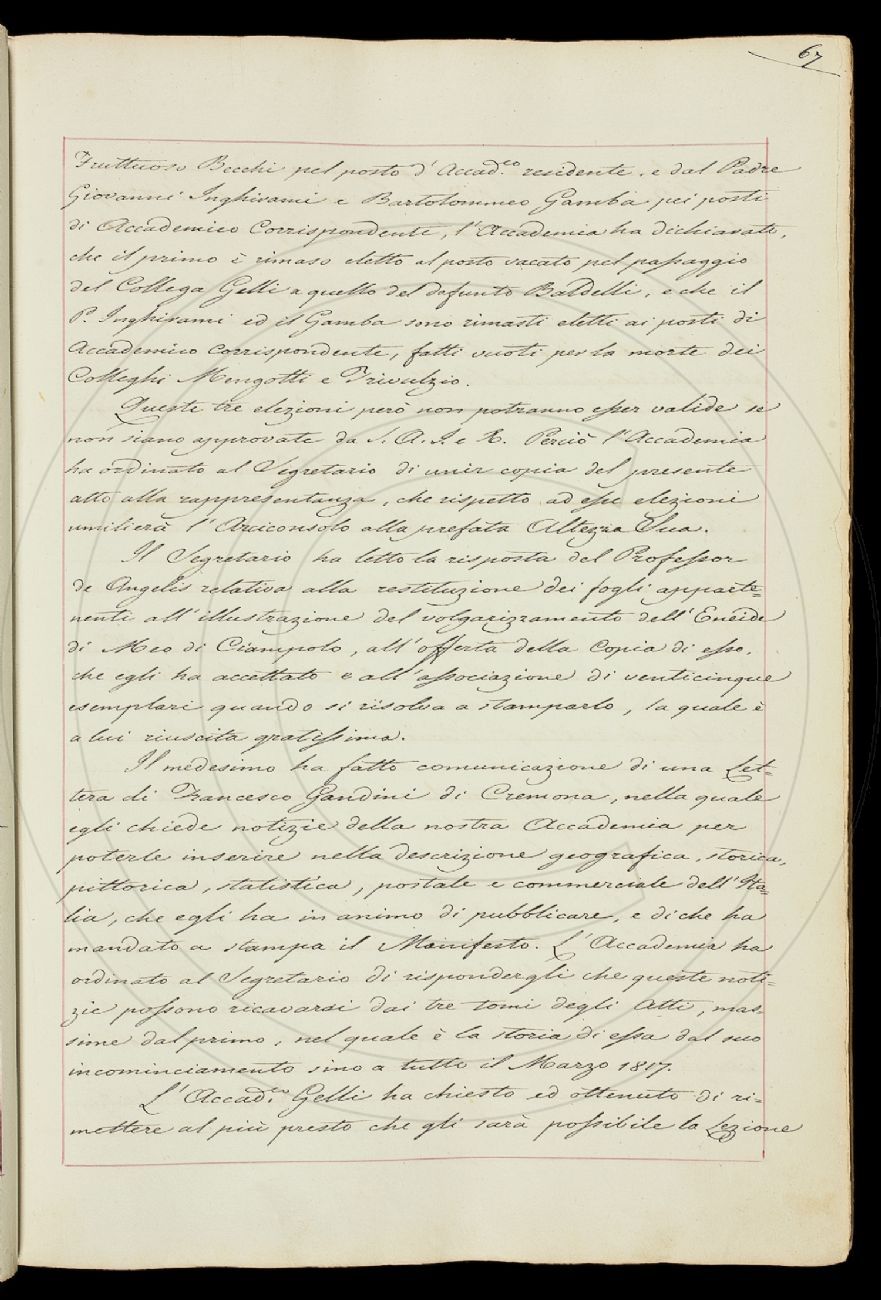 67
Fruttuoso Becchi pel posto d'Accad.co residente, e dal Padre
Giovanni Inghirami e Bartolommeo Gamba pei posti
di Accademico Corrispondente, l'Accademia ha dichiarato,
che il primo è rimaso eletto al posto vacato pel passaggio
del Collega Gelli a quello del defunto Baldelli, e che il
P. Inghirami ed il Gamba sono rimasti eletti ai posti di
Accademico Corrispondente, fatti vuoti per la morte dei
Colleghi Mengotti e Trivulzio.
Queste tre elezioni però non potranno esser valide se
non siano approvate da S. A. I. e R. Perciò l'Accademia
ha ordinato al Segretario di unir copia del presente
atto alla rappresentanza, che rispetto ad esse elezioni
umilierà l'Arciconsolo alla prefata Altezza Sua.
Il Segretario ha letto la risposta del Professor
de Angelis relativa alla restituzione dei fogli apparte=
nenti all'illustrazione del volgarizzamento dell'Eneide
di Meo di Ciampolo, all'offerta della Copia di esso,
che egli ha accettato e all'associazione di venticinque
esemplari quando si risolva a stamparlo, la quale è
a lui riuscita gratissima.
Il medesimo ha fatto comunicazione di una Let=
tera di Francesco Gandini di Cremona, nella quale
egli chiede notizie della nostra Accademia per
poterle inserire nella descrizione geografica, storica,
pittorica, statistica, postale e commerciale dell'Ita=
lia, che egli ha in animo di pubblicare, e di che ha
mandato a stampa il Manifesto. L'Accademia ha
ordinato al Segretario di rispondergli che queste noti=
zie possono ricavarsi dai tre tomi degli Atti, mas=
sime dal primo, nel quale è la storia di essa dal suo
incominciamento sino a tutto il Marzo 1817.
L'Accad.co Gelli ha chiesto ed ottenuto di ri=
mettere al più presto che gli sarà possibile la Lezione